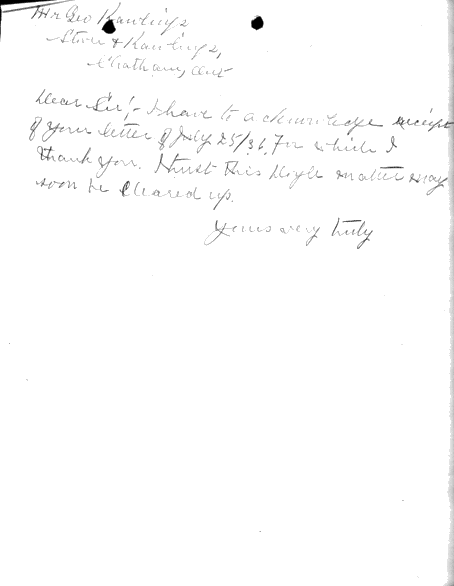 Mr Geo Rawlings
Stone & Rawlings,
Chatham, Ont
Dear Sir;- I have to acknowledge receipt
of your letter of July 25/36, For which I
thank you. I trust this Doyle matter may
soon be cleared up.
Yours very truly